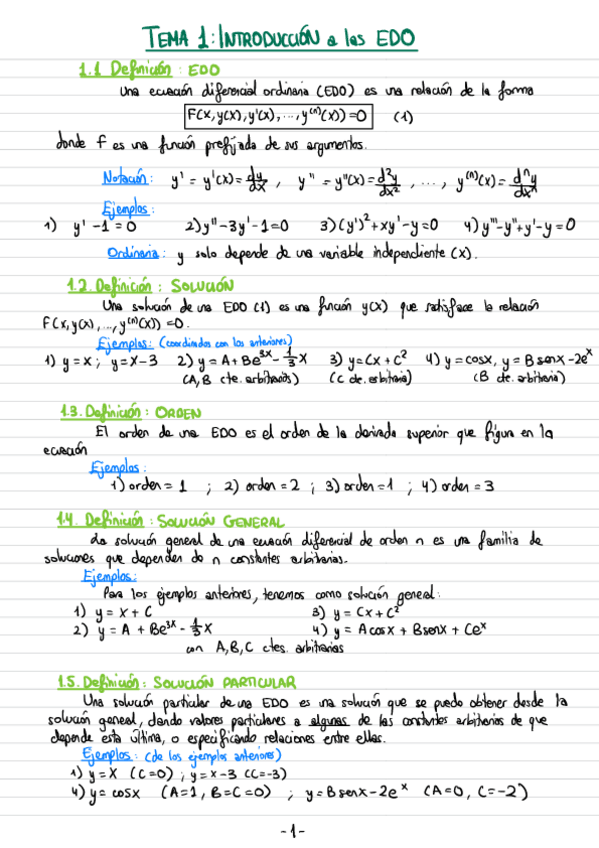 TEMA 1: INTRODUCCIÓN a las EDO
1.1 Definición: EDO
Una ecuación diferencial ordinaria (EDO) es una relación de la forma
F(x,y(x),y'(x),...,y⁽ⁿ⁾(x))=0 (1)
donde F es una función prefijada de sus argumentos.
Notación: y' = y'(x) = dy/dx , y'' = y''(x) = d²y/dx² , ..., y⁽ⁿ⁾(x) = dⁿy/dxⁿ
Ejemplos:
1) y' -1 = 0 2) y''-3y'-1=0 3) (y')²+xy'-y=0 4) y'''-y''+y'-y=0
Ordinaria: y solo depende de una variable independiente (x).
1.2. Definición: SOLUCIÓN
Una solución de una EDO (1) es una función y(x) que satisface la relación
F(x,y(x),...,y⁽ⁿ⁾(x))=0.
Ejemplos: (coordinados con los anteriores)
1) y=x; y=x-3 2) y=A+Be³ˣ-1/3 x 3) y=Cx+C² 4) y=cosx, y=Bsenx-2eˣ
(A,B cte. arbitrarios) (C cte. arbitraria) (B cte. arbitraria)
1.3. Definición: ORDEN
El orden de una EDO es el orden de la derivada superior que figura en la
ecuación
Ejemplos:
1) orden = 1 ; 2) orden = 2 ; 3) orden = 1 ; 4) orden = 3
1.4. Definición: SOLUCIÓN GENERAL
La solución general de una ecuación diferencial de orden n es una familia de
soluciones que dependen de n constantes arbitrarias.
Ejemplos:
Para los ejemplos anteriores, tenemos como solución general:
1) y = x + C 3) y = Cx + C²
2) y = A + Be³ˣ - 1/3 x 4) y = Acosx + Bsenx + Ceˣ
con A,B,C ctes. arbitrarias
1.5. Definición: SOLUCIÓN PARTICULAR
Una solución particular de una EDO es una solución que se puede obtener desde la
solución general, dando valores particulares a algunas de las constantes arbitrarias de que
depende esta última, o especificando relaciones entre ellas.
Ejemplos: (de los ejemplos anteriores)
1) y = x (C=0) ; y = x-3 (C=-3)
4) y = cosx (A=1, B=C=0) ; y=Bsenx-2eˣ (A=0, C=-2)
-1-